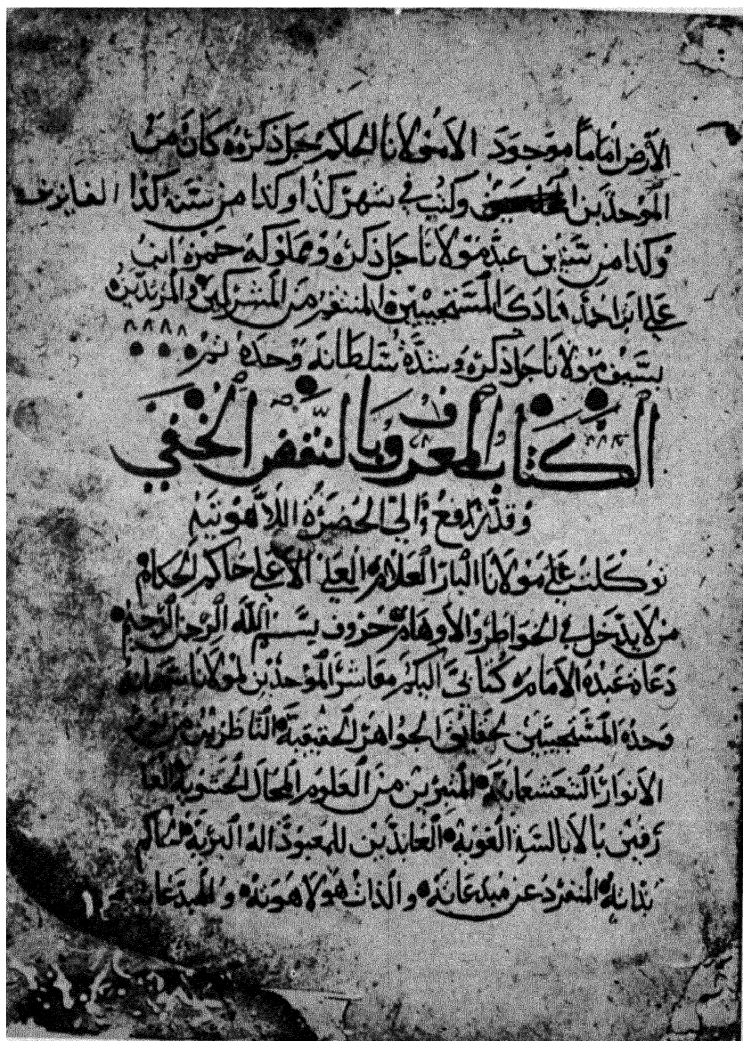 الأرض إماماً موجود الا مولانا الحاكم جل ذكره كان من
الموحدين وكتب في شهر كذا وكذا من سنة كذا الفايزين
وكذا من سنين عبد مولانا جل ذكره ومملوكه حمزه ابن
علي ابن احمد هادي المستجيبين المنتقم من المشركين والمرتدين
بسيف مولانا جل ذكره وشدة سلطانه وحده
الكتاب المعروف بالنقض الخفي
وقد رفع الى الحضرة اللاهوتيه
توكلت على مولانا البار العلام العلي الأعلى حاكم الحكام
من لا يدخل في الخواطر والأوهام حروف بسم الله الرحمن الرحيم
دعاة عبده الامام كتابي اليكم معاشر الموحدين لمولانا سبحانه
وحده المستجيبين لحقائق الجواهر الحقيقية الناظرين من
الأنوار الشعشعانية المتبرين من العلوم المحال الحشوية العا
رفين بالأبالسة الغوية العابدين للمعبود اله البرية الحاكم
بذاته المنفرد عن مبدعاته والذات هو لاهوته والمبدعات